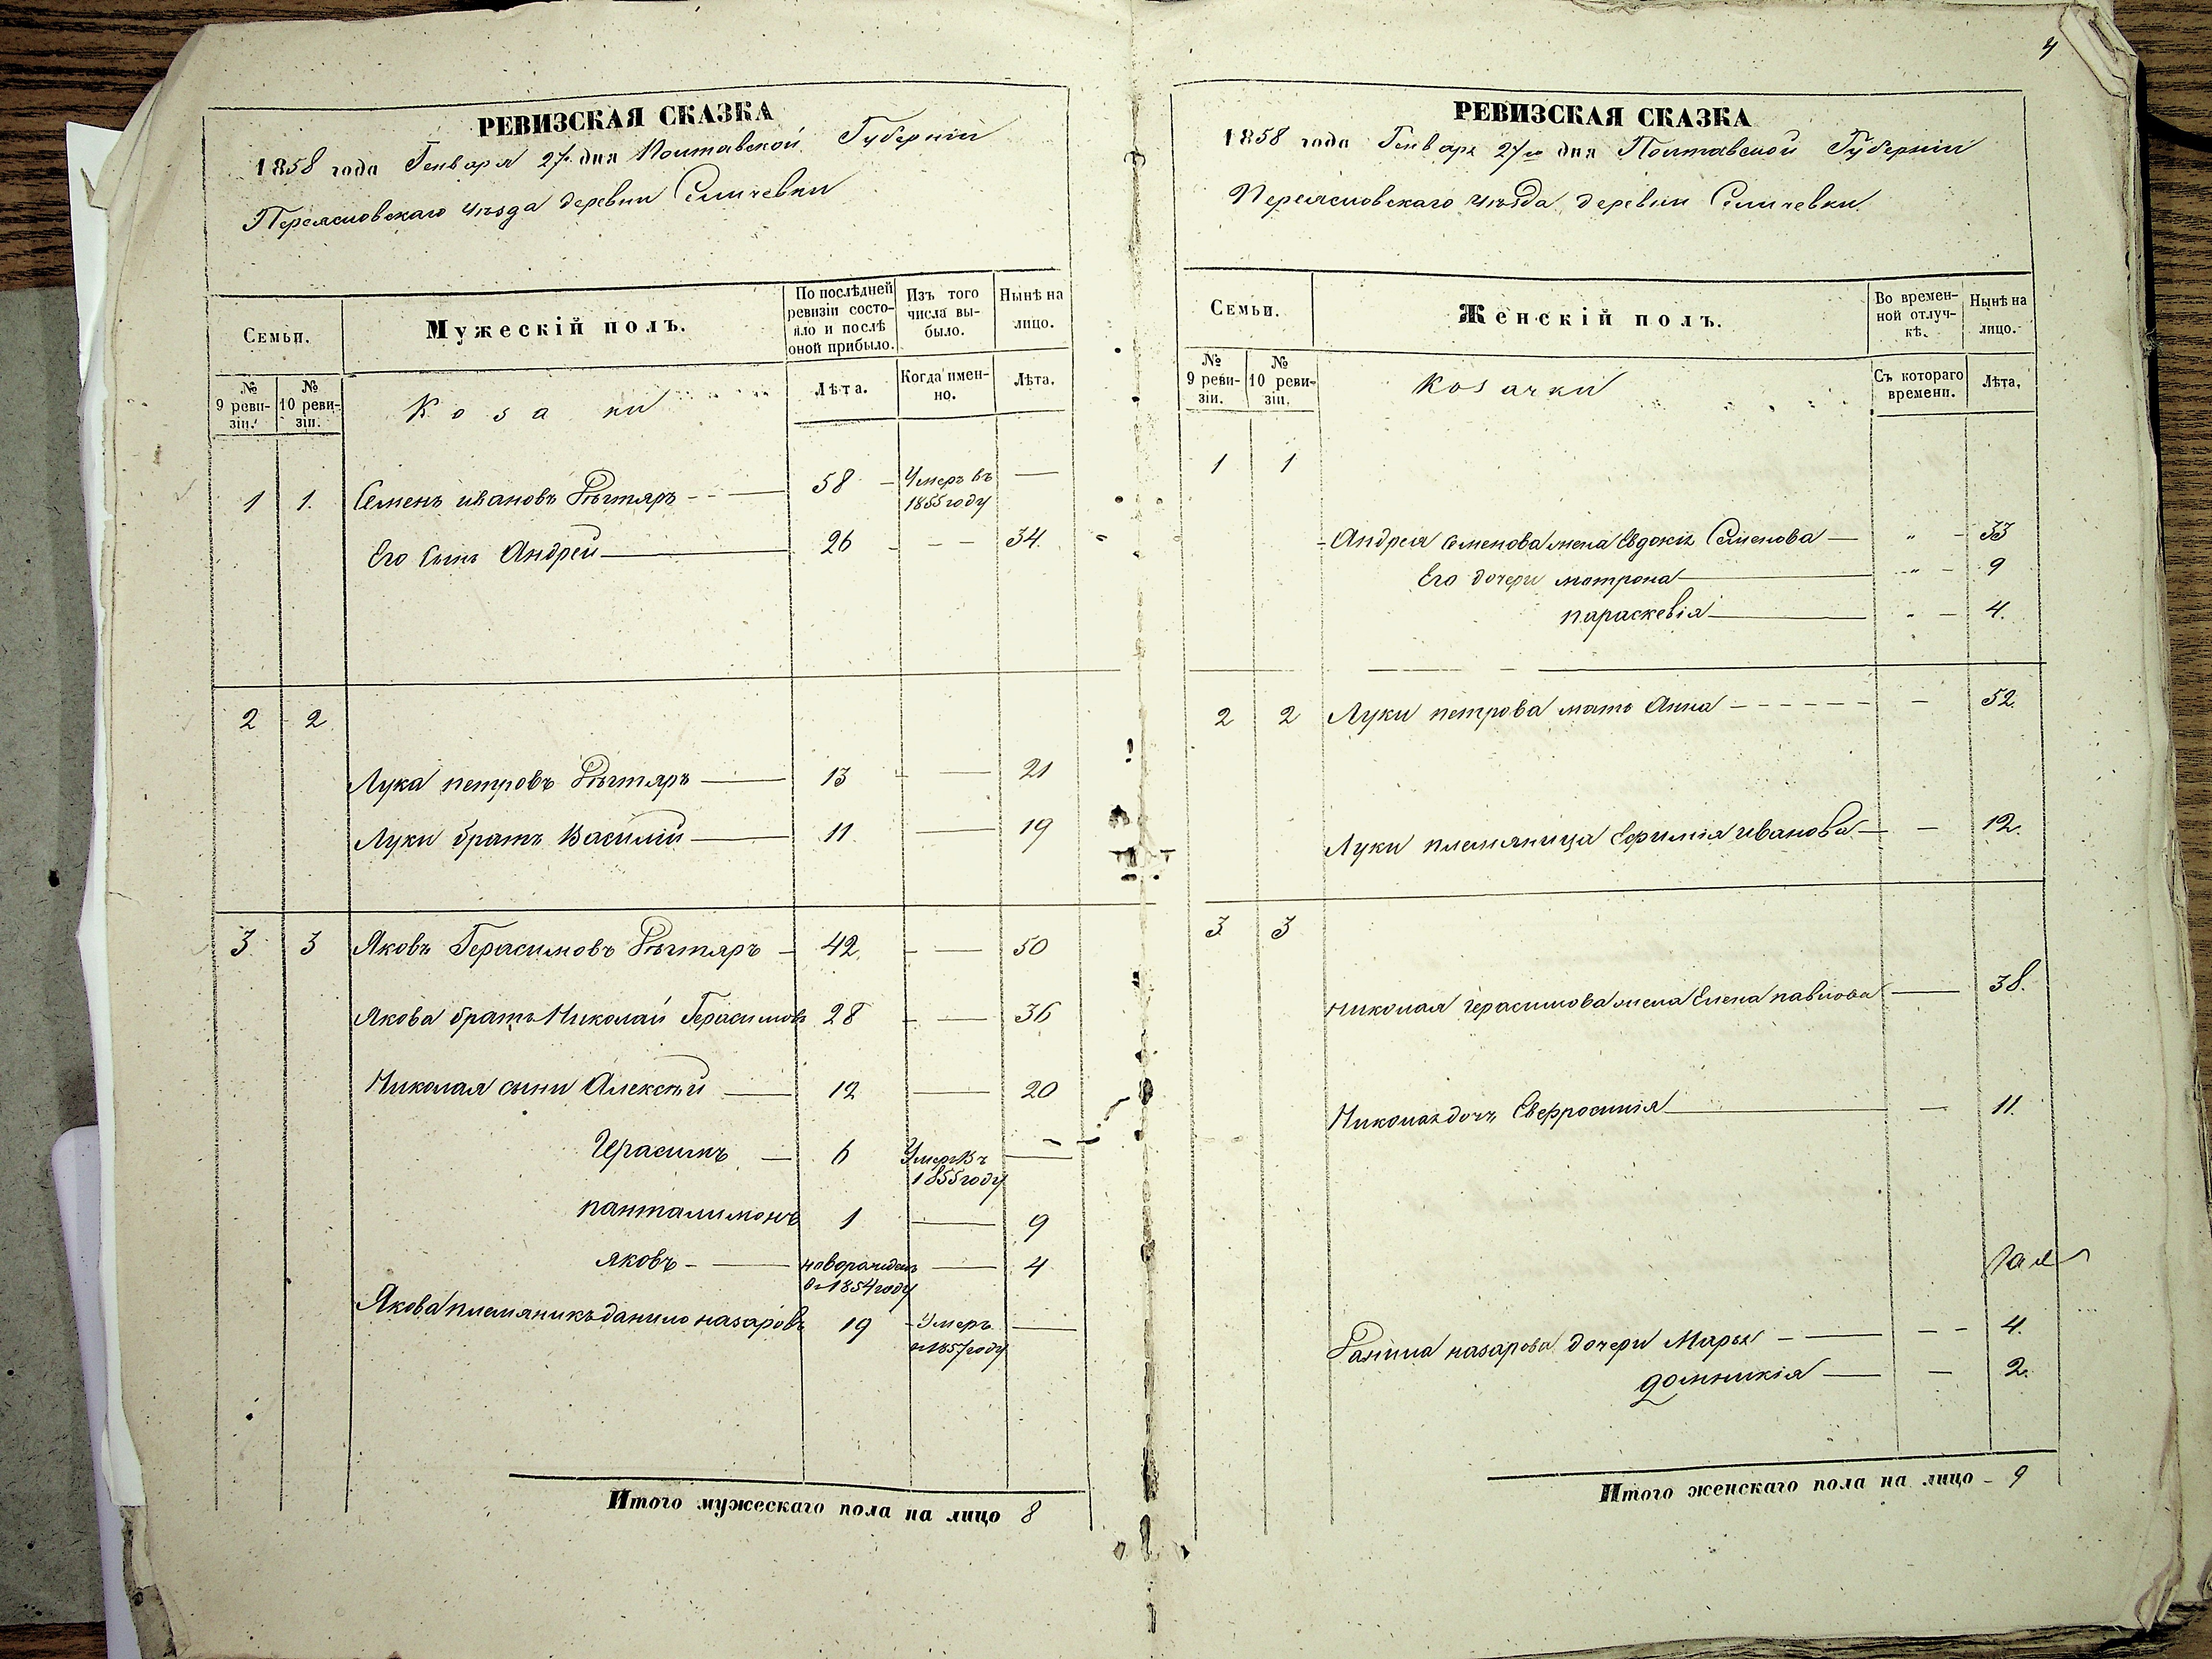 4
РЕВИЗСКАЯ СКАЗКА
1858 года Генваря 27 дня Полтавской Губерніи
Переясловскаго уѣзда деревни Селичевки
Семьи.
Мужескій полъ.
По послѣдней ревизіи состояло и послѣ оной прибыло.
Изъ того числа выбыло.
Нынѣ на лицо.
№ 9 ревизіи.
№ 10 ревизіи.
Козаки
Лѣта.
Когда имен-но.
Лѣта.
1 1. Семенъ ивановъ Дѣгтяръ 58 Умеръ въ 1855 году —
Его сынъ Андрей 26 — 34.
2 2
Лука петровъ Дѣгтяръ 13 — 21
Луки братъ Василій 11 — 19
3 3 Яковъ Герасимовъ Дѣгтяръ 42 — 50
Якова братъ Николай Герасимовъ 28 — 36
Николая сыни Алексѣй 12 — 20
Герасимъ 6 Умеръ въ 1855 году —
панталимонъ 1 — 9
яковъ новорожденъ въ 1854 году — 4
Якова племяникъ данило назаровъ 19 Умеръ в 1857 году —
Итого мужескаго пола на лицо 8
РЕВИЗСКАЯ СКАЗКА
1858 года Генваря 27го дня Полтавской Губерніи
Переясловскаго уѣзда деревни Селичевки
Семьи.
Женскій полъ.
Во времен-ной отлуч-кѣ.
Нынѣ на лицо.
№ 9 реви-зіи.
№ 10 реви-зіи.
Козачки
Съ котораго времени.
Лѣта.
1 1
Андрея семенова жена Евдокія Семенова " 33
Его дочери мотрона " 9
параскевія " 4.
2 2 Луки петрова мать Анна — 52.
Луки племяница Ефимія иванова — 12.
3 3
Николая герасимова жена Елена павлова — 38.
Николая дочь Евфросинія — 11.
Данила назарова дочери Марья — 4.
домникія — 2.
Итого женскаго пола на лицо 9